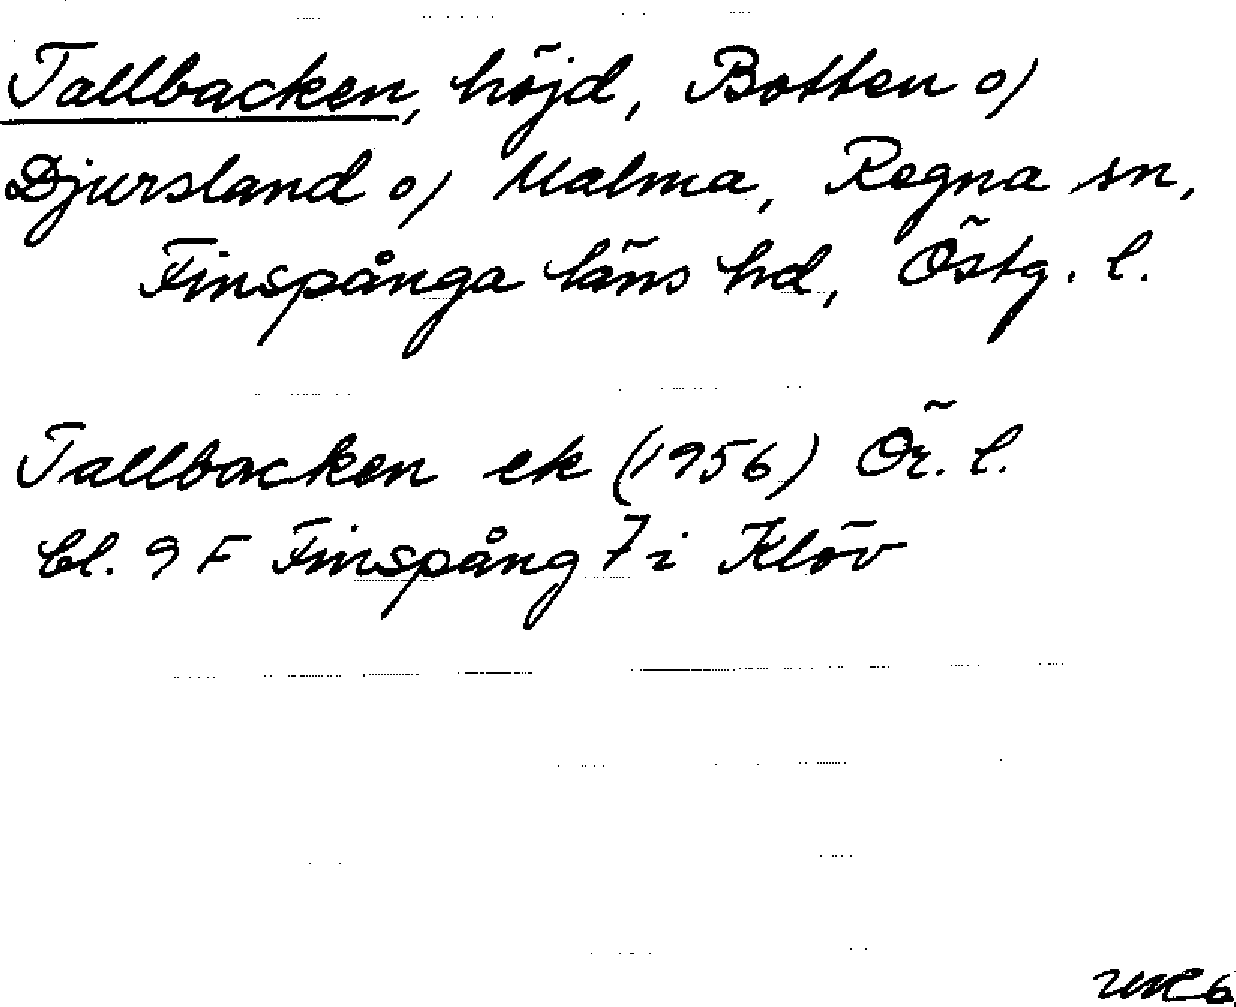 Tallbacken, höjd, Botten o/
Djursland o/ Malma, Regna sn,
Finspånga läns hd, Östg. l.
Tallbacken ek (1956) Ör. l.
bl. 9 F Finspång 7 i Klöv